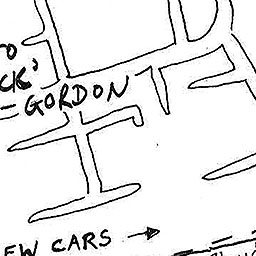 TO
CK'
= GORDON
EW CARS →